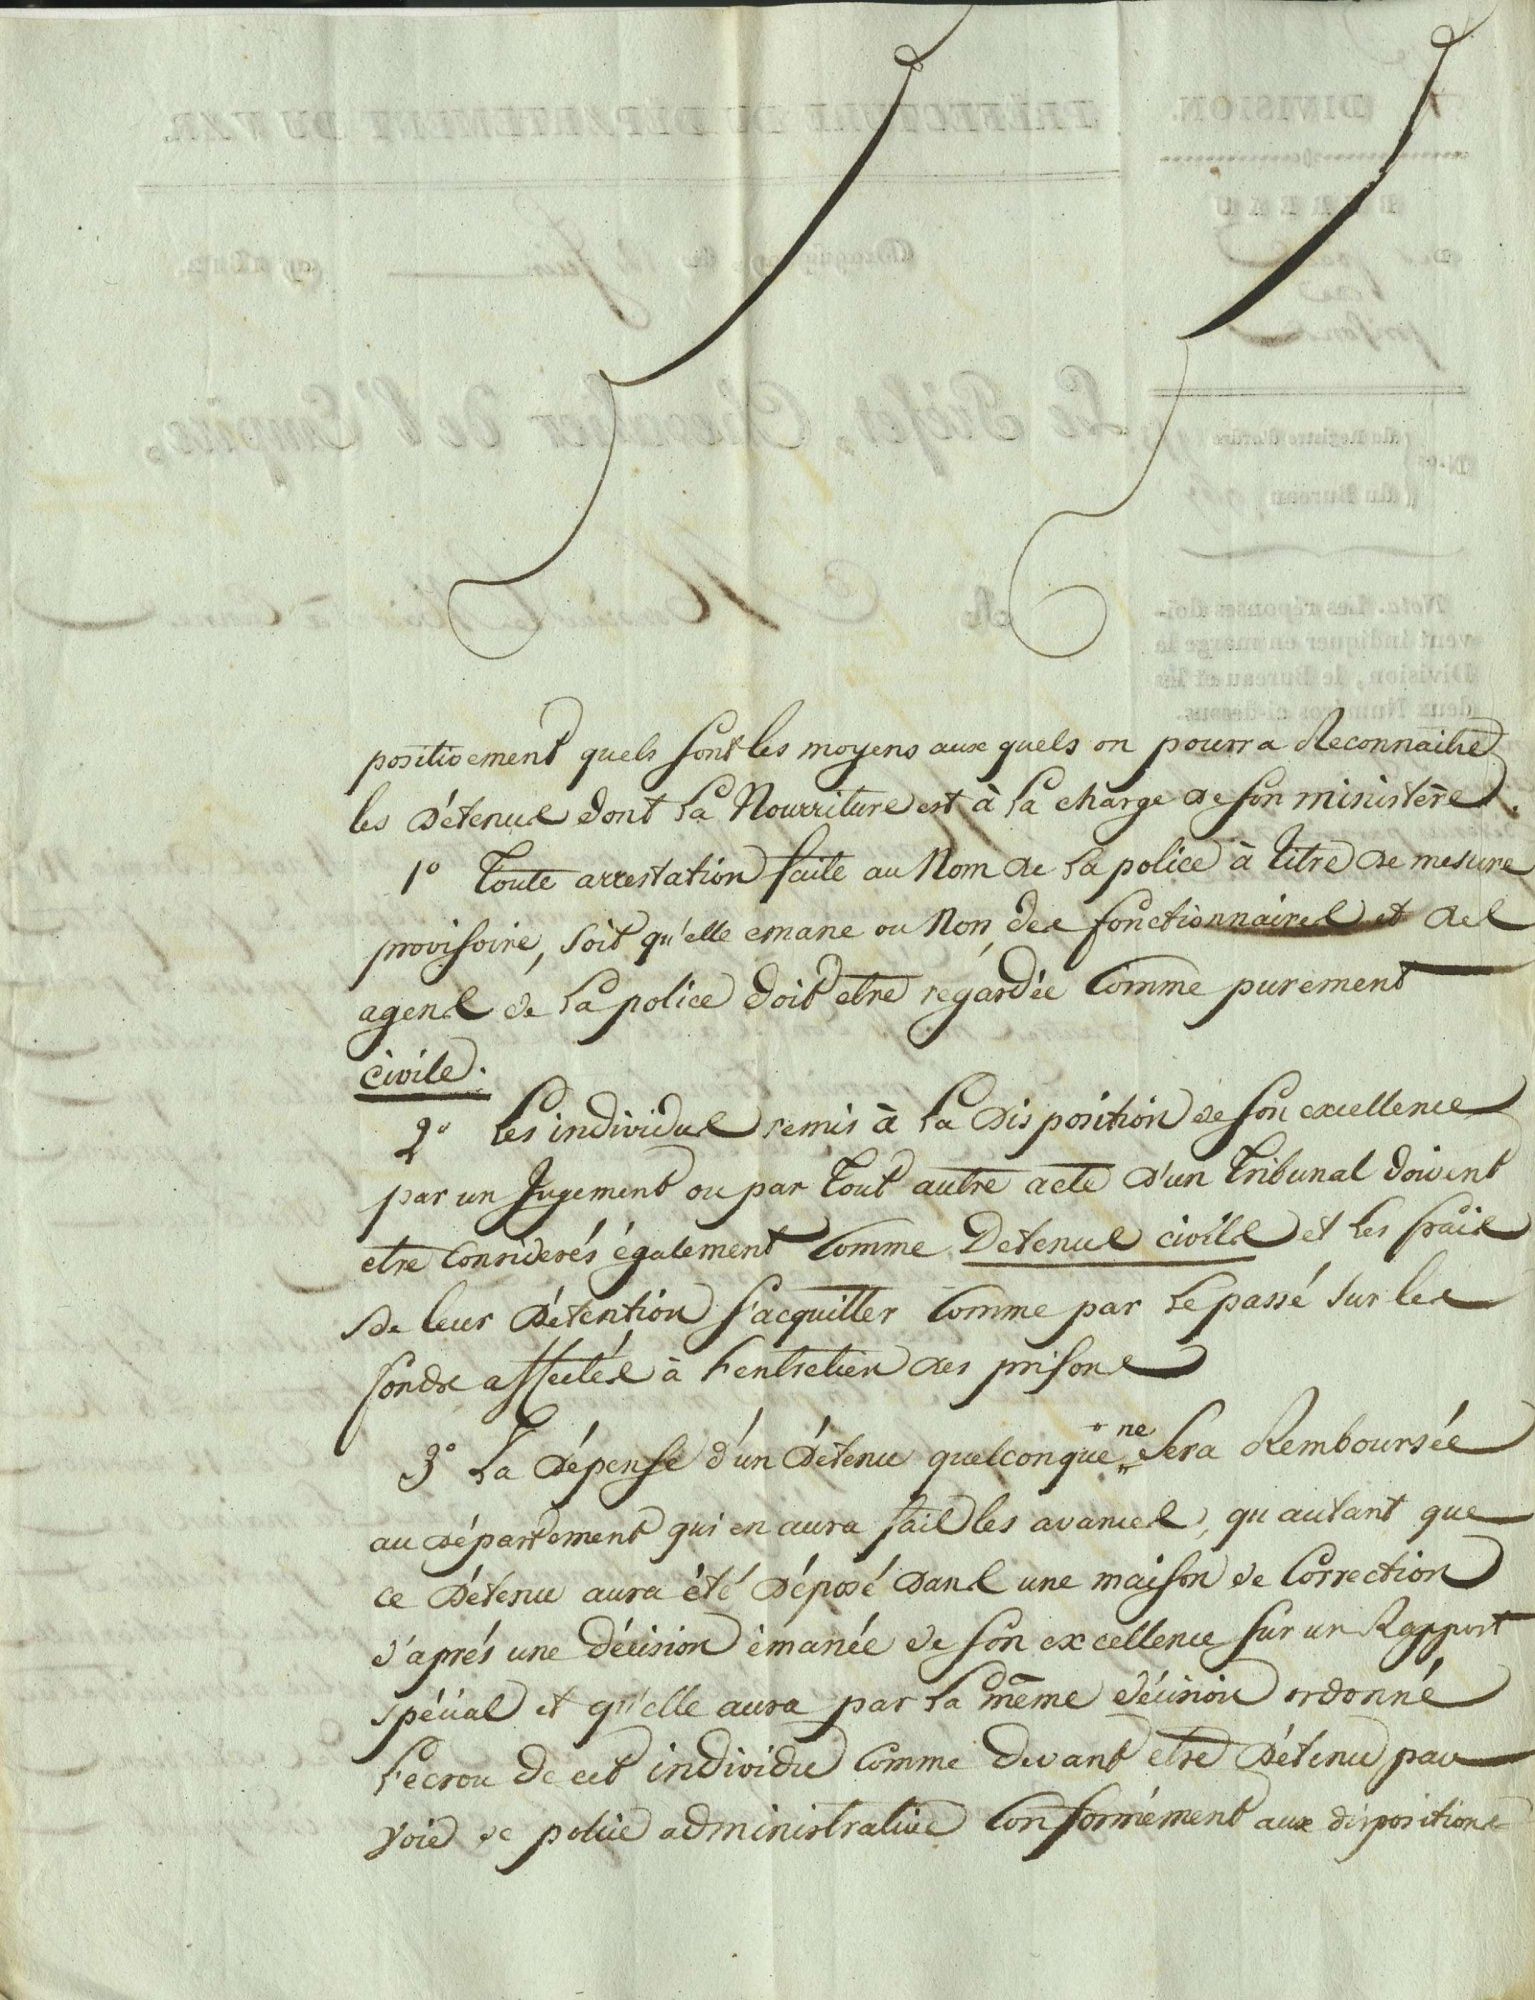 positivement quels sont les moyens aux quels on pourra Reconnaitre
les Détenus dont la Nourriture est à la charge de son ministère.
1° Toute arrestation faite au Nom de la police à titre de mesure
provisoire, soit qu'elle emane ou Non, des fonctionnaires et des
agens de la police doit etre régardée Comme purement
civile.
2° Les individus remis à la Disposition de son excellence
par un Jugement ou par Tout autre acte d'un Tribunal doivent
etre Considerés également Comme Detenus civils et les frais
de leur Détention s'acquitter Comme par le passé sur les
fonds affectés à l'entretien des prisons
3° La Dépense d'un Détenu quelconque ne sera Remboursée
au Département qui en aura fait les avances, qu autant que
ce Détenu aura été Déposé Dans une maison de Correction
d'aprés une décision émanée de son excellence sur un Rapport
spécial et qu'elle aura par la même décision ordonné
l'ecrou de cet individu Comme devant etre Détenu par
voie de police administrative Conformément aux dispositions